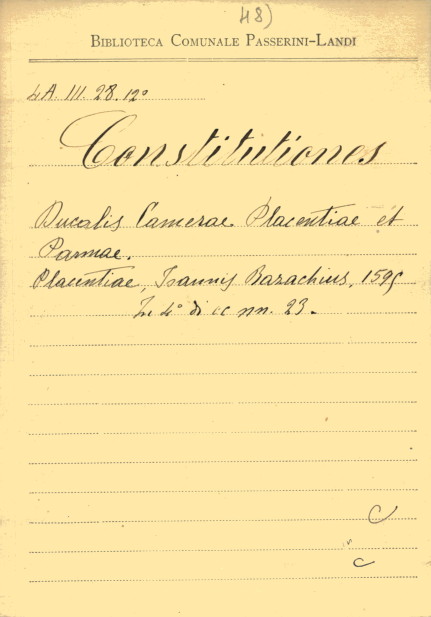 48)
BIBLIOTECA COMUNALE PASSERINI-LANDI
4A. III. 28. 12º
Constitutiones
Ducalis Camerae Placentiae et
Parmae.
Placentiae, Joannis Bazachius, 1595
In 4º di cc nn. 23.
C
C